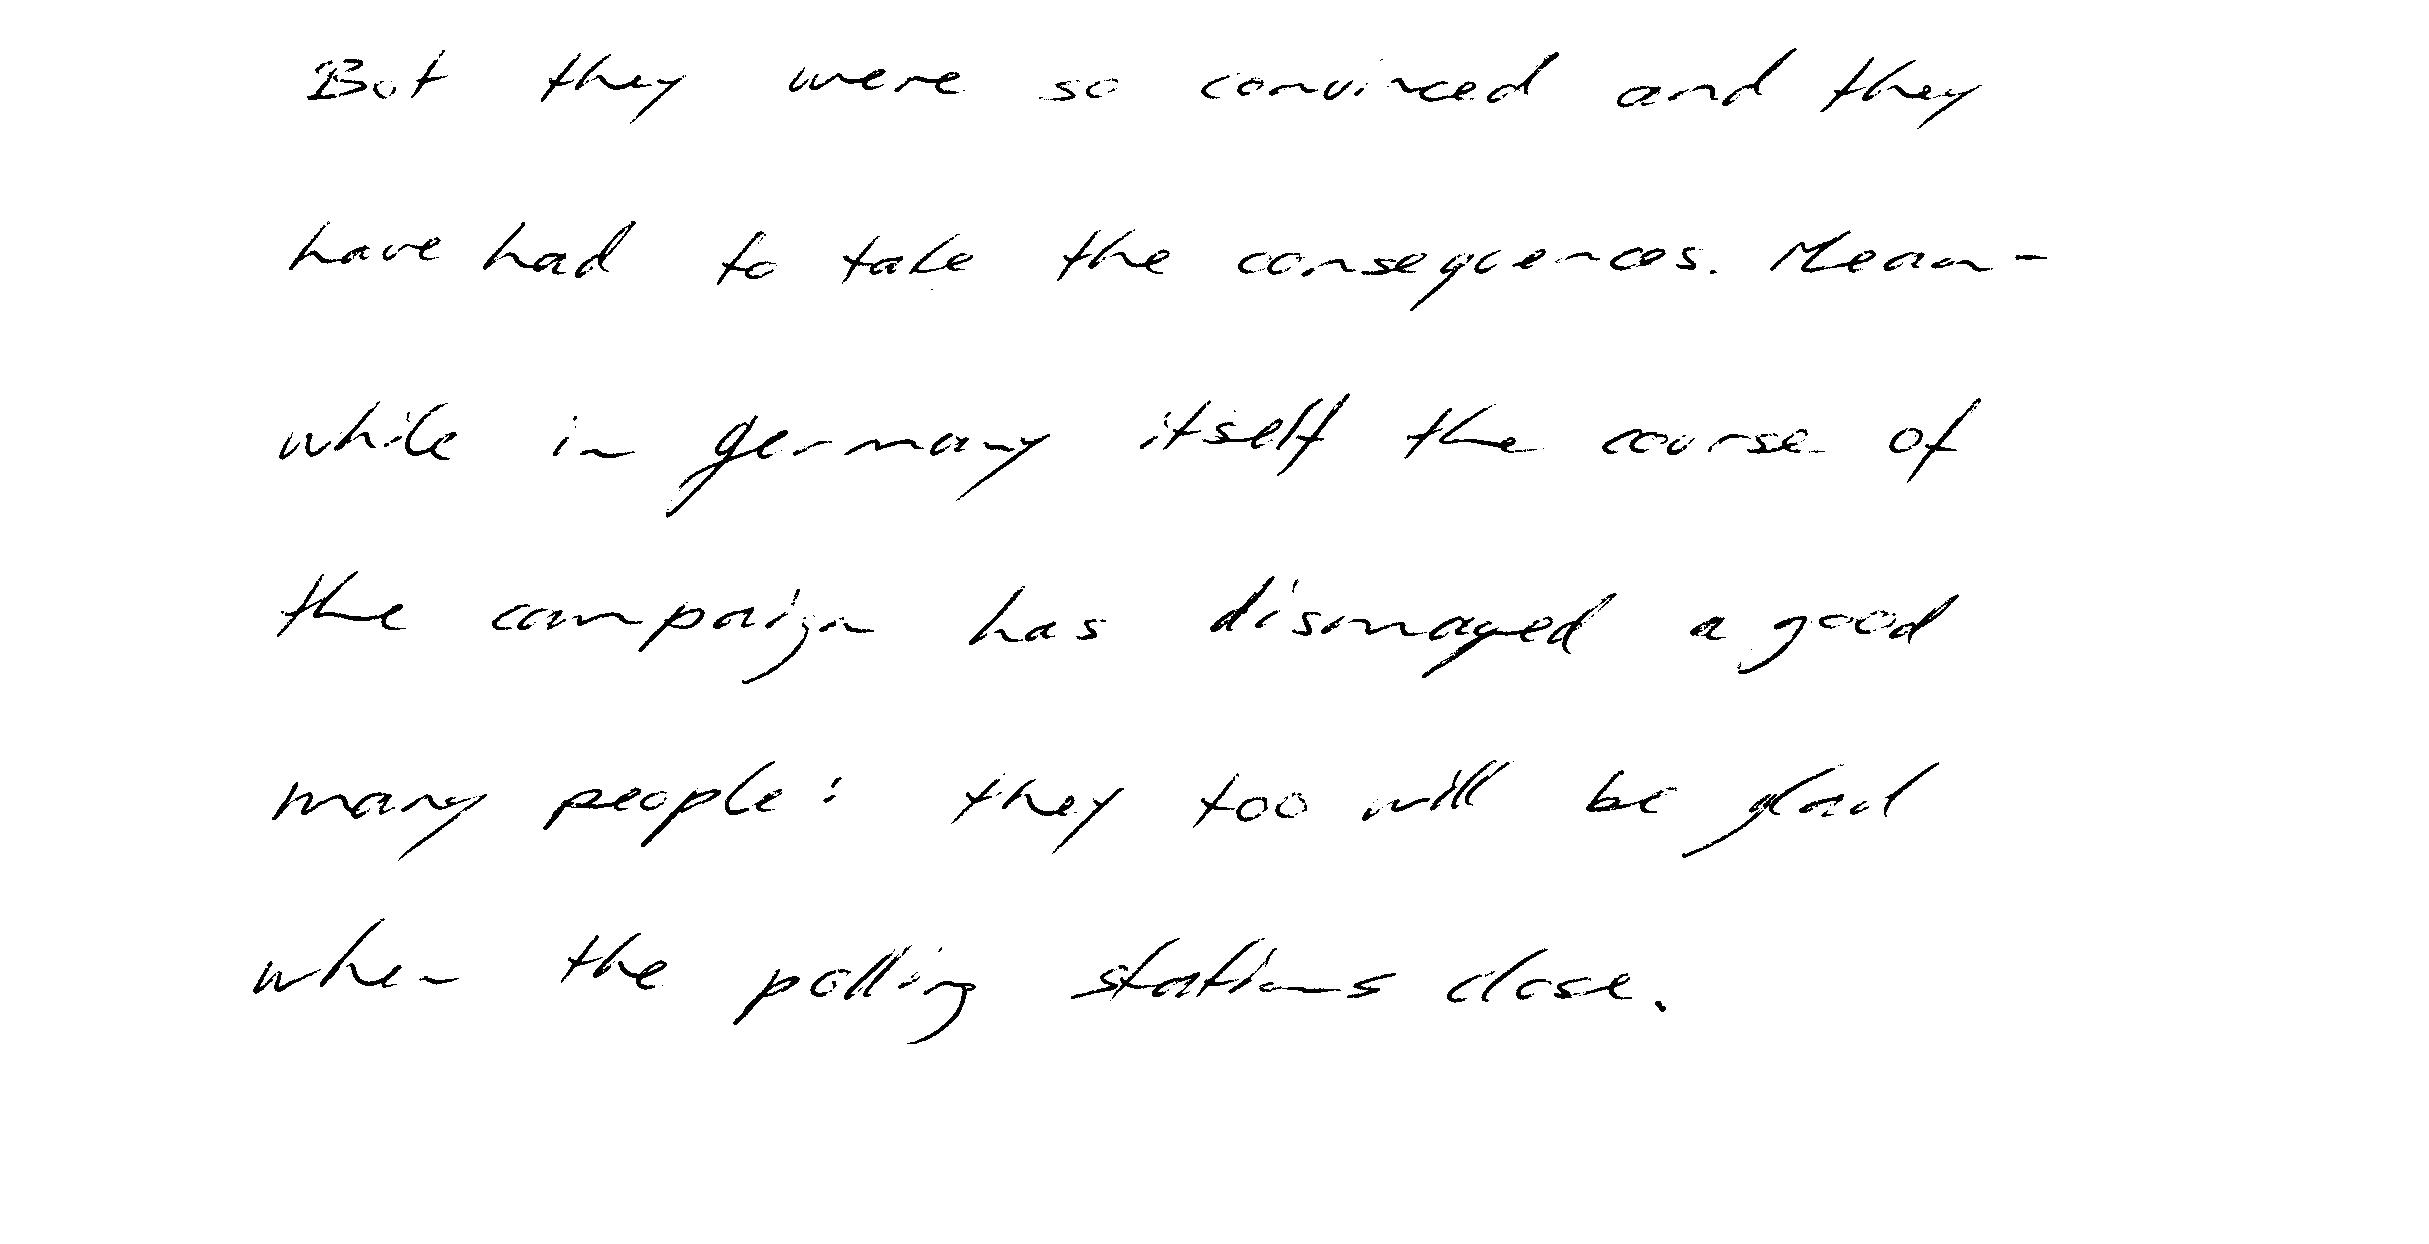 But they were so convinced and they
have had to take the consequences. Mean-
while in Germany itself the course of
the campaign has dismayed a good
many people: they too will be glad
when the polling stations close.